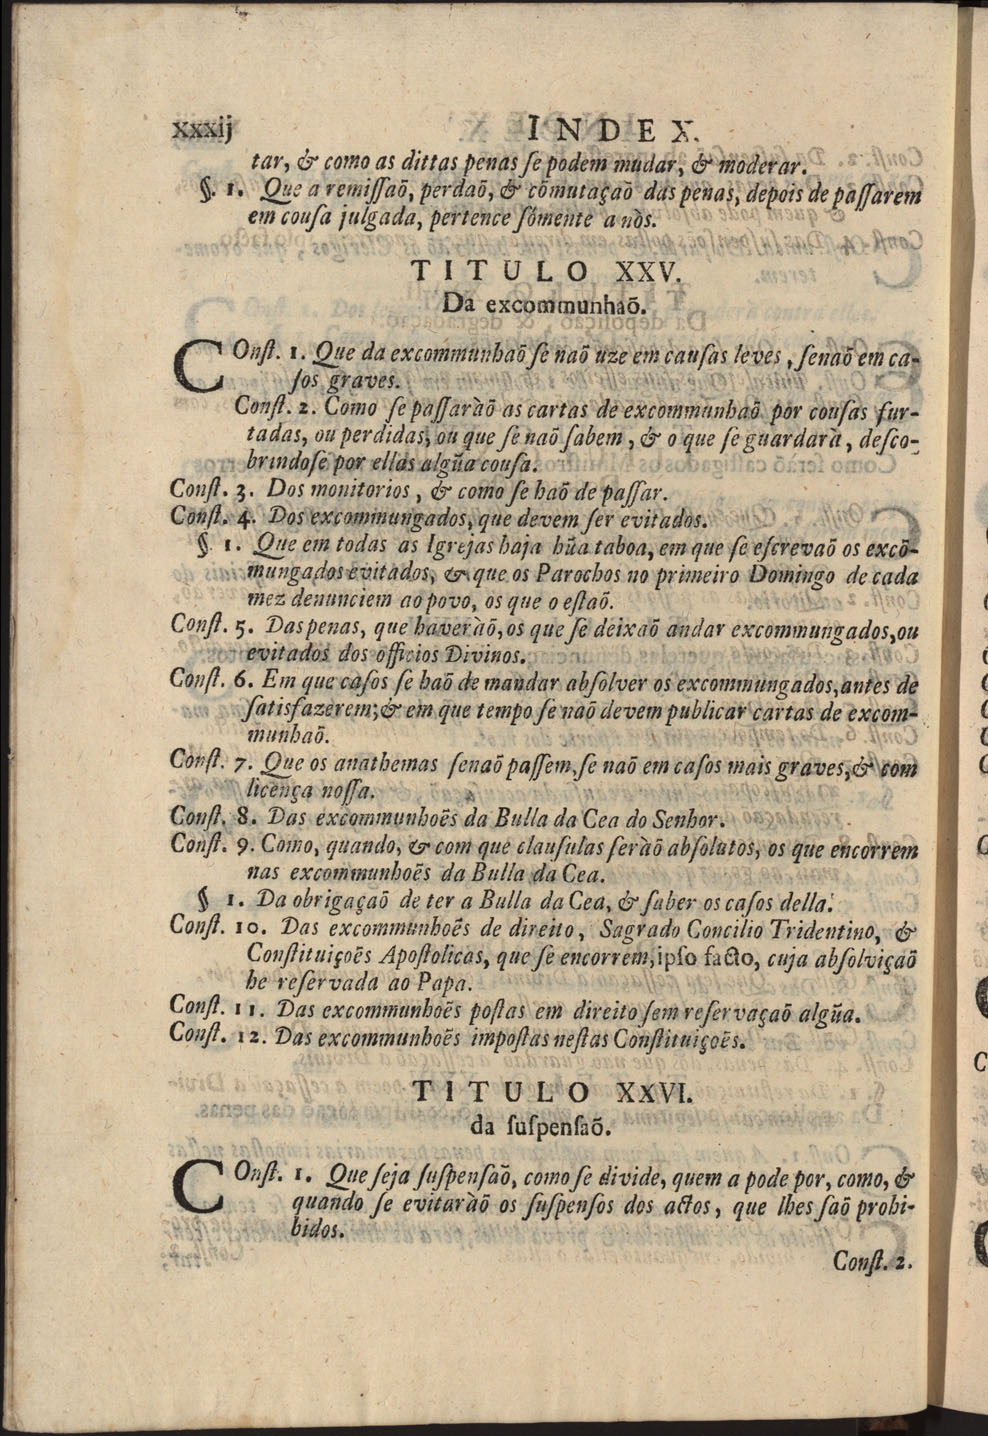 xxxij INDEX.
tar, & como as dittas penas ſe podem mudar, & moderar.
§. 1. Que a remiſſaõ, perdaõ, & cõmutaçaõ das penas, depois de paſſarem
em couſa julgada, pertence ſómente a nòs.
TITULO XXV.
Da excommunhaõ.
COnſt. 1. Que da excommunhaõ ſe naõ uze em cauſas leves, ſenaõ em ca-
ſos graves.
Conſt. 2. Como ſe paſſaràõ as cartas de excommunhaõ por couſas fur-
tadas, ou perdidas, ou que ſe naõ ſabem, & o que ſe guardarà, deſco-
brindoſe por ellas algũa couſa.
Conſt. 3. Dos monitorios, & como ſe haõ de paſſar.
Conſt. 4. Dos excommungados, que devem ſer evitados.
§ 1. Que em todas as Igrejas haja hũa taboa, em que ſe eſcrevaõ os excõ-
mungados evitados, & que os Parochos no primeiro Domingo de cada
mez denunciem ao povo, os que o eſtaõ.
Conſt. 5. Das penas, que haveràõ, os que ſe deixaõ andar excommungados, ou
evitados dos officios Divinos.
Conſt. 6. Em que caſos ſe haõ de mandar abſolver os excommungados, antes de
ſatisfazerem; & em que tempo ſe naõ devem publicar cartas de excom-
munhaõ.
Conſt. 7. Que os anathemas ſenaõ paſſem, ſe naõ em caſos mais graves, & com
licença noſſa.
Conſt. 8. Das excommunhoẽs da Bulla da Cea do Senhor.
Conſt. 9. Como, quando, & com que clauſulas ſeràõ abſolutos, os que encorrem
nas excommunhoẽs da Bulla da Cea.
§ 1. Da obrigaçaõ de ter a Bulla da Cea, & ſaber os caſos della.
Conſt. 10. Das excommunhoẽs de direito, Sagrado Concilio Tridentino, &
Conſtituiçoẽs Apoſtolicas, que ſe encorrem, ipſo facto, cuja abſolviçaõ
he reſervada ao Papa.
Conſt. 11. Das excommunhoẽs poſtas em direito ſem reſervaçaõ algũa.
Conſt. 12. Das excommunhoẽs impoſtas neſtas Conſtituiçoẽs.
TITULO XXVI.
da ſuſpenſaõ.
COnſt. 1. Que ſeja ſuſpenſaõ, como ſe divide, quem a pode por, como, &
quando ſe evitaràõ os ſuſpenſos dos actos, que lhes ſaõ prohi-
bidos.
Conſt. 2.